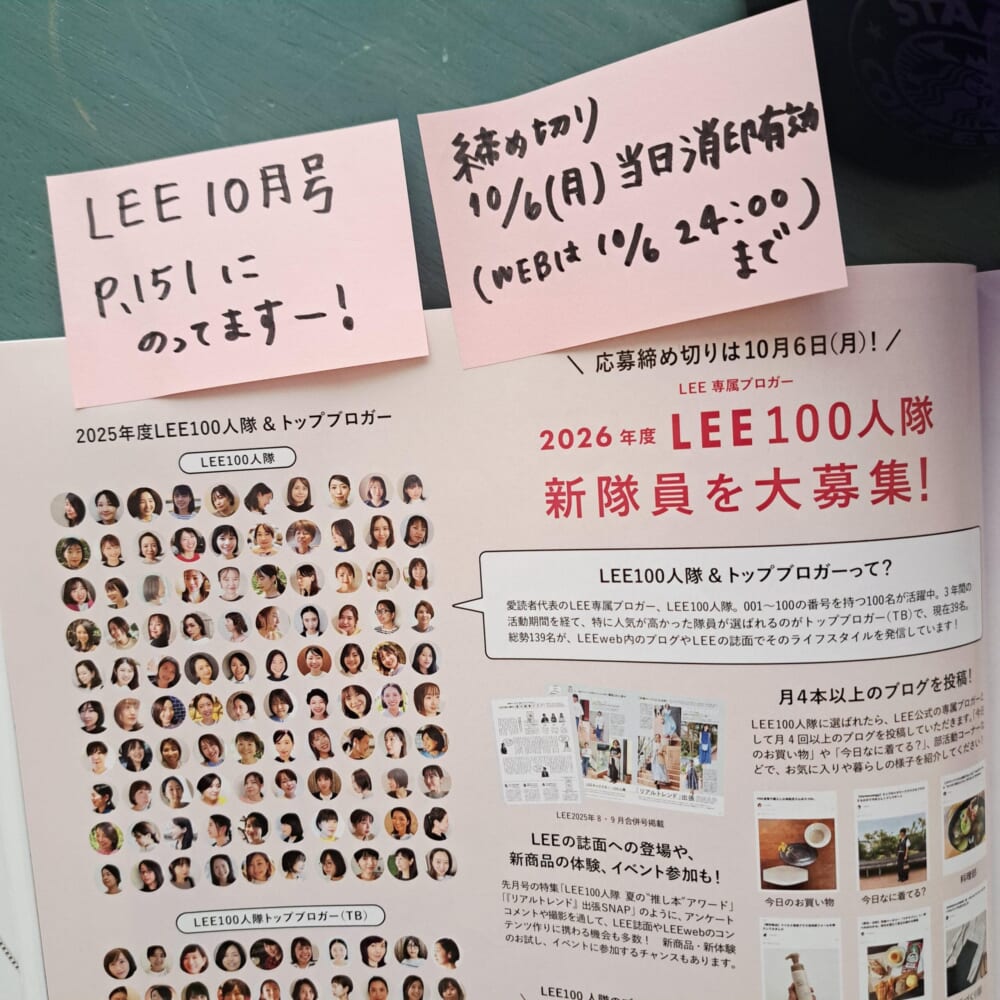 LEE 10月号
P.151に
のってますー!
締め切り
10/6(月)当日消印有効
(WEBは 10/6 24:00)
まで
\ 応募締め切りは10月6日(月)! /
LEE 専属ブロガー
2026年度 LEE100人隊
新隊員を大募集!
2025年度LEE100人隊&トップブロガー
LEE100人隊
LEE100人隊トップブロガー(TB)
LEE100人隊&トップブロガーって?
愛読者代表のLEE専属ブロガー、LEE100人隊。001〜100の番号を持つ100名が活躍中。3年間の
活動期間を経て、特に人気が高かった隊員が選ばれるのがトップブロガー(TB)で、現在39名。
総勢139名が、LEEweb内のブログやLEEの誌面でそのライフスタイルを発信しています!
月4本以上のブログを投稿!
LEE100人隊に選ばれたら、LEE公式の専属ブロガーと
して月4回以上のブログを投稿していただきます。「今日
のお買い物」や「今日なに着てる?」、部活動コーナーな
どで、お気に入りや暮らしの様子を紹介してください!
「リアルトレンド」出張
LEE2025年8・9月合併号掲載
LEEの誌面への登場や、
新商品の体験、イベント参加も!
先月号の特集「LEE100人隊 夏の"推し本"アワード」
「『リアルトレンド』出張SNAP」のように、アンケート
コメントや撮影を通して、LEE誌面やLEEwebのコン
テンツ作りに携わる機会も多数! 新商品・新体験
のお試し、イベントに参加するチャンスもあります。
今日のお買い物
今日なに着てる?
料理部